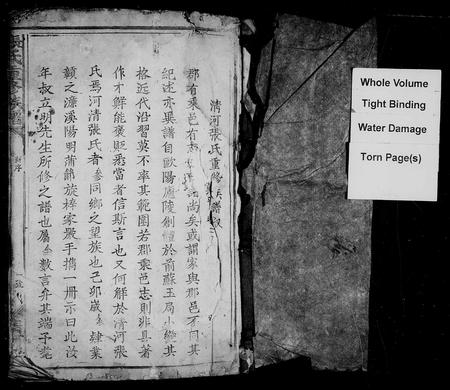 清河張氏重修族譜叙
郡有乘邑有志家有譜尚矣或謂家與郡邑不同其
紀述亦異譜自歐陽廬陵創體於前蘇玉局小變其
格近代沿習莫不率其範圍若郡乘邑志則非具著
作才鮮能褒貶悉當者信斯言也又何解於清河張
氏焉河清張氏者叅同鄉之望族也己卯歲叅肄業
顥之濂溪陽明蕭餙族梓家嚴手携一冊示曰此汝
年叔立明先生所修之譜也屬叅數言弁其端予
張氏重修族譜
叙序
Whole Volume
Tight Binding
Water Damage
Torn Page(s)